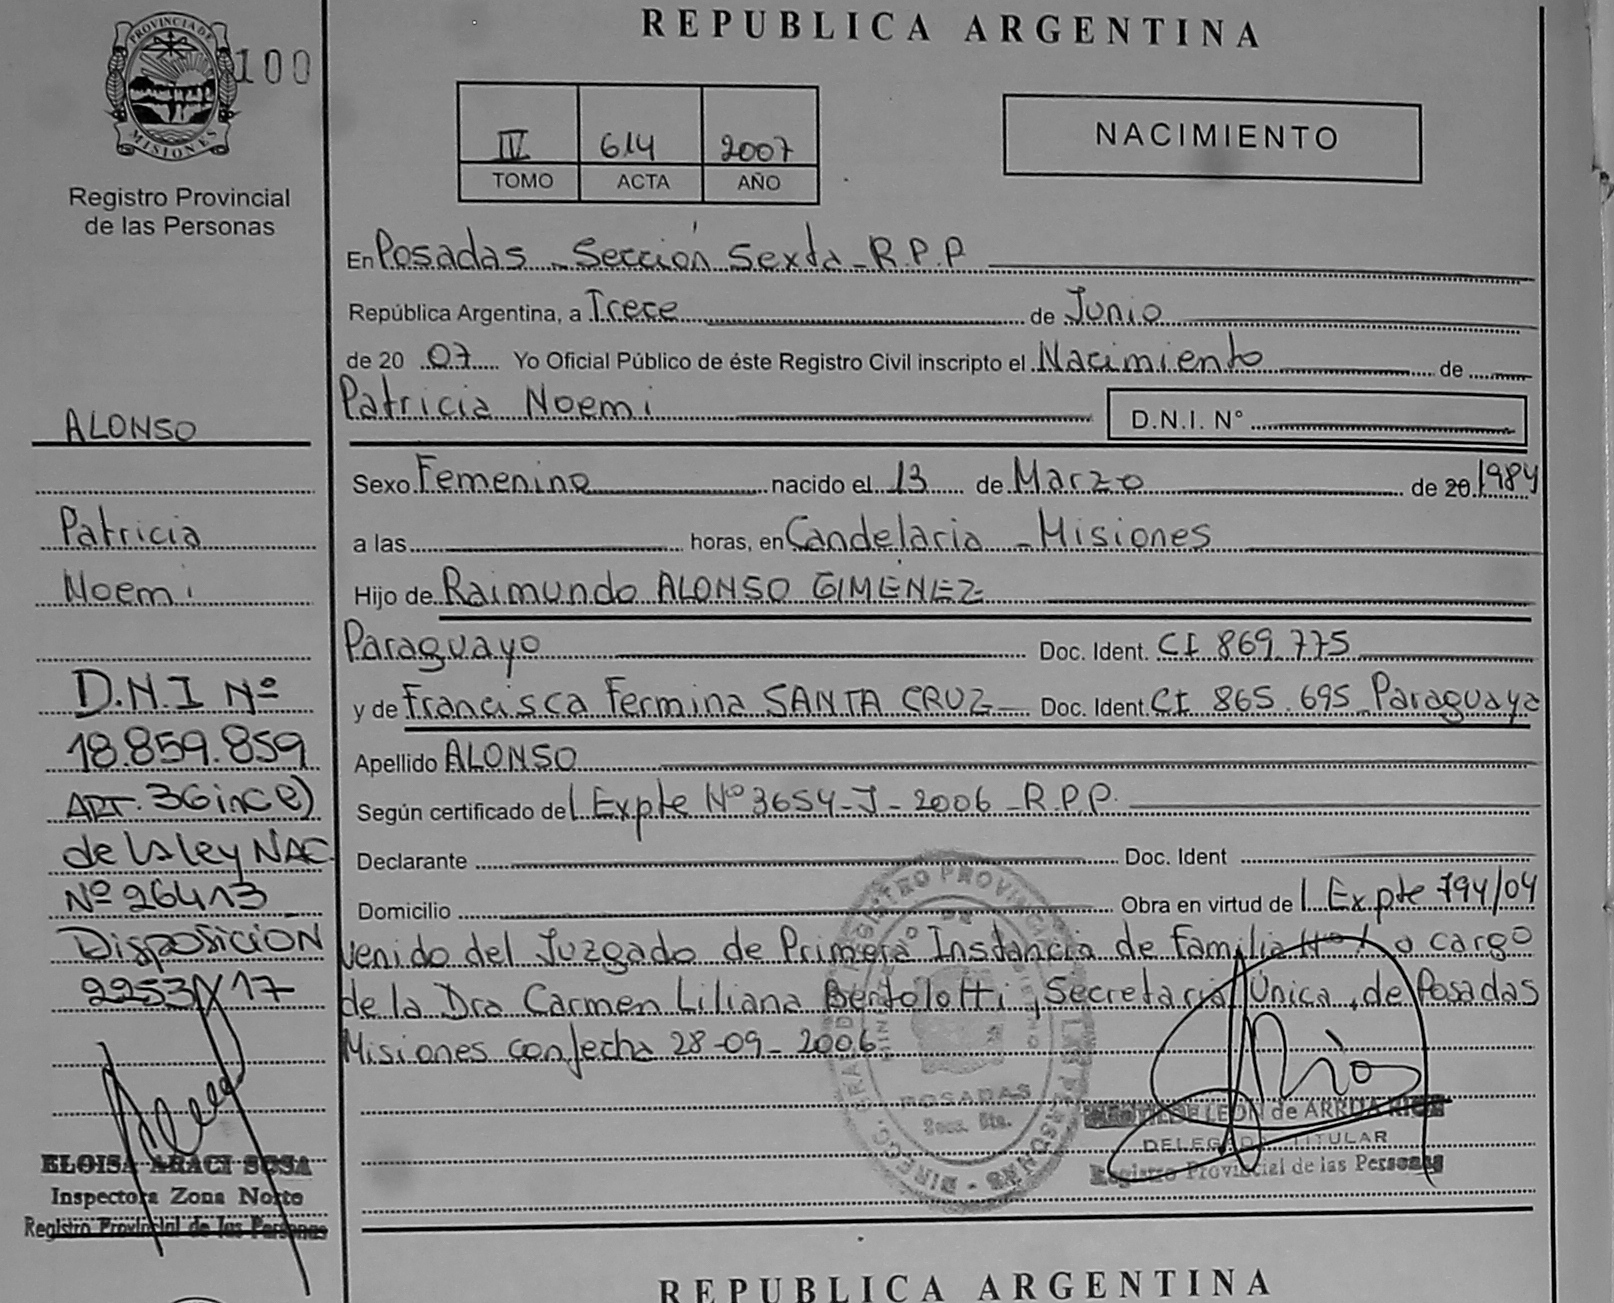 REPUBLICA ARGENTINA
PROVINCIA DE MISIONES
100
Registro Provincial
de las Personas
IV 614 2007
TOMO ACTA AÑO
NACIMIENTO
En Posadas - Sección Sexta - R.P.P
República Argentina, a Trece de Junio
de 20 07 Yo Oficial Público de éste Registro Civil inscripto el Nacimiento de
Patricia Noemi D.N.I. N°
Sexo Femenino nacido el 13 de Marzo de 20 1984
a las horas, en Candelaria - Misiones
Hijo de Raimundo ALONSO GIMÉNEZ
Paraguayo Doc. Ident. CI 869.775
y de Francisca Fermina SANTA CRUZ Doc. Ident. CI 865.695 Paraguaya
Apellido ALONSO
Según certificado de l Expte Nº 3654-J-2006-R.P.P.
Declarante Doc. Ident
Domicilio Obra en virtud de l Expte 794/04
venido del Juzgado de Primera Instancia de Familia Nº 1 a cargo
de la Dra Carmen Liliana Bertolotti, Secretaria Única, de Posadas
Misiones con fecha 28-09-2006
ALONSO
Patricia
Noemi
D.N.I Nº
18.859.859
ART. 36 inc e)
de la ley NAC
Nº 26413
Disposicion
2253/17
ELOISA ARACI SOSA
Inspectora Zona Norte
Registro Provincial de las Personas
POSADAS
Secc. 6ta.
LEON de ARRUA
DELEGADA TITULAR
Registro Provincial de las Personas
REPUBLICA ARGENTINA